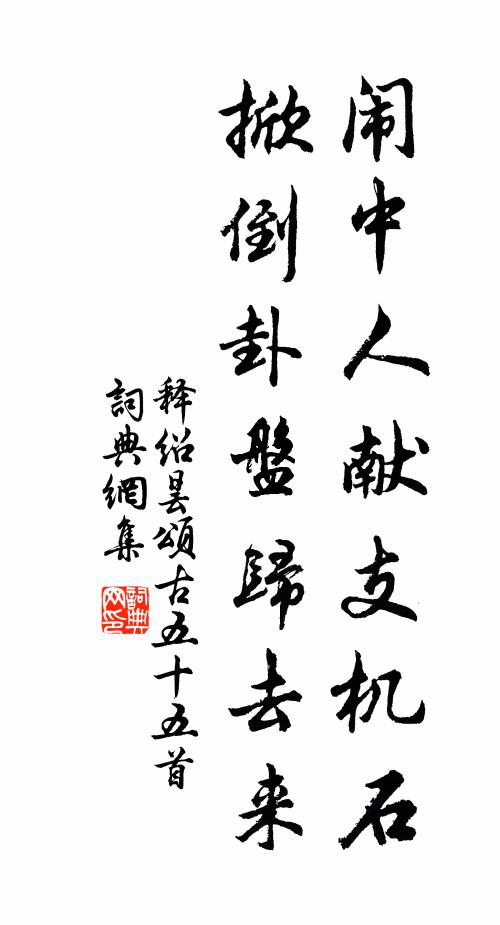 闹中人献支机石
掀倒卦盤歸去来
释绍昙頌古五十五首
詞典網集
詞典
网印